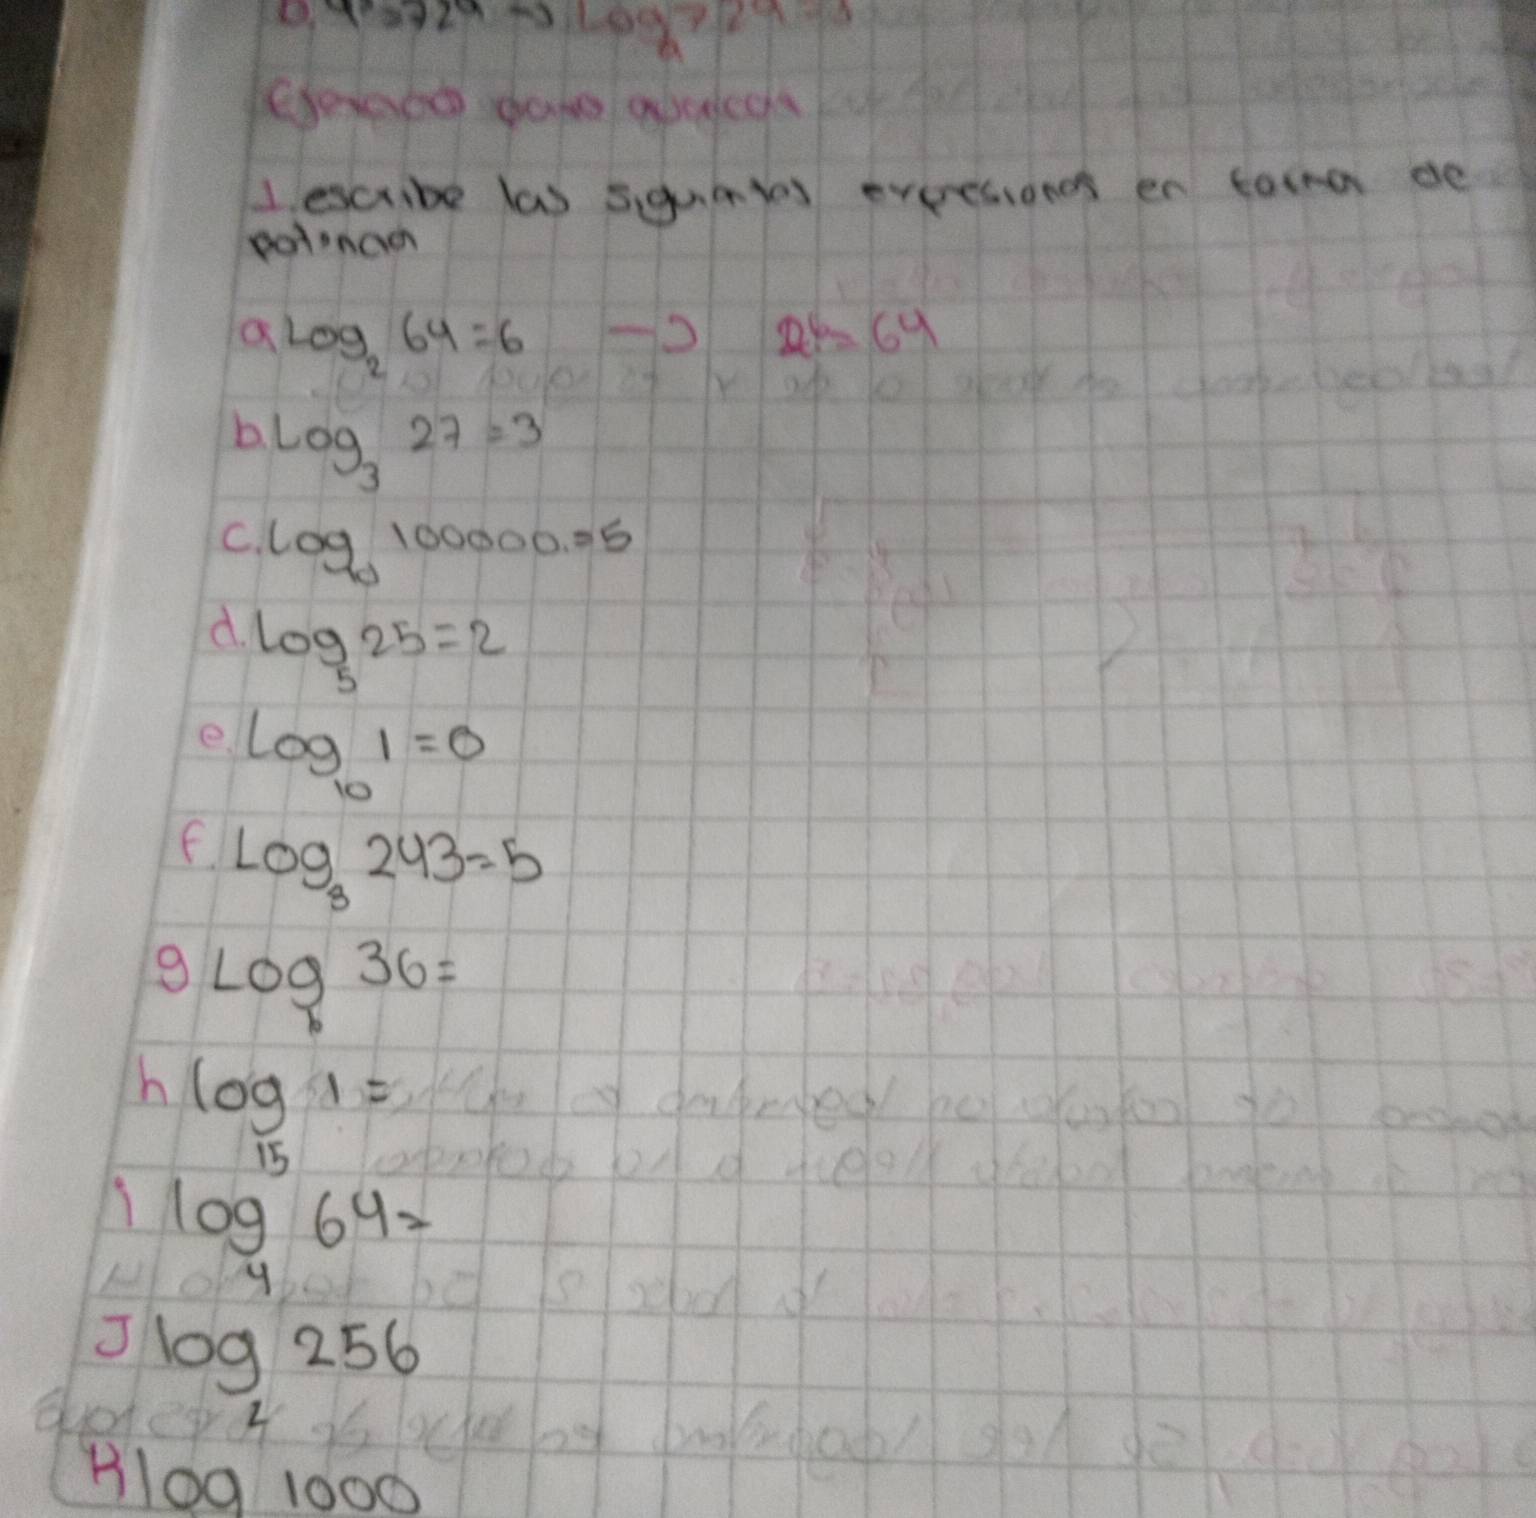 1. escribe las siguientes expresiones en forma de
potencia
a Log₂ 64 = 6 → 2⁶ = 64
b. Log₃ 27 = 3
c. Log₁₀ 100000 = 5
d. Log₅ 25 = 2
e. Log₁₀ 1 = 0
f. Log₃ 243 = 5
g Log₆ 36 =
h log₁₅ 1 =
i log₄ 64 =
J log₂ 256
K log 1000